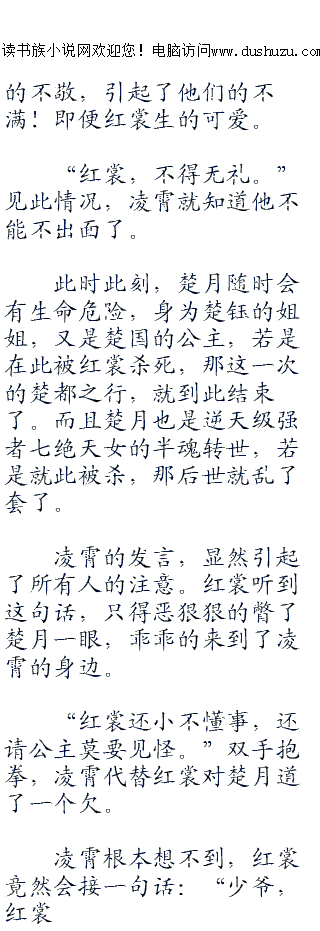 读书族小说网欢迎您！电脑访问www.dushuzu.com
的不敬，引起了他们的不
满！即便红裳生的可爱。
“红裳，不得无礼。”
见此情况，凌霄就知道他不
能不出面了。
此时此刻，楚月随时会
有生命危险，身为楚钰的姐
姐，又是楚国的公主，若是
在此被红裳杀死，那这一次
的楚都之行，就到此结束
了。而且楚月也是逆天级强
者七绝天女的半魂转世，若
是就此被杀，那后世就乱了
套了。
凌霄的发言，显然引起
了所有人的注意。红裳听到
这句话，只得恶狠狠的瞥了
楚月一眼，乖乖的来到了凌
霄的身边。
“红裳还小不懂事，还
请公主莫要见怪。”双手抱
拳，凌霄代替红裳对楚月道
了一个欠。
凌霄根本想不到，红裳
竟然会接一句话：“少爷，
红裳